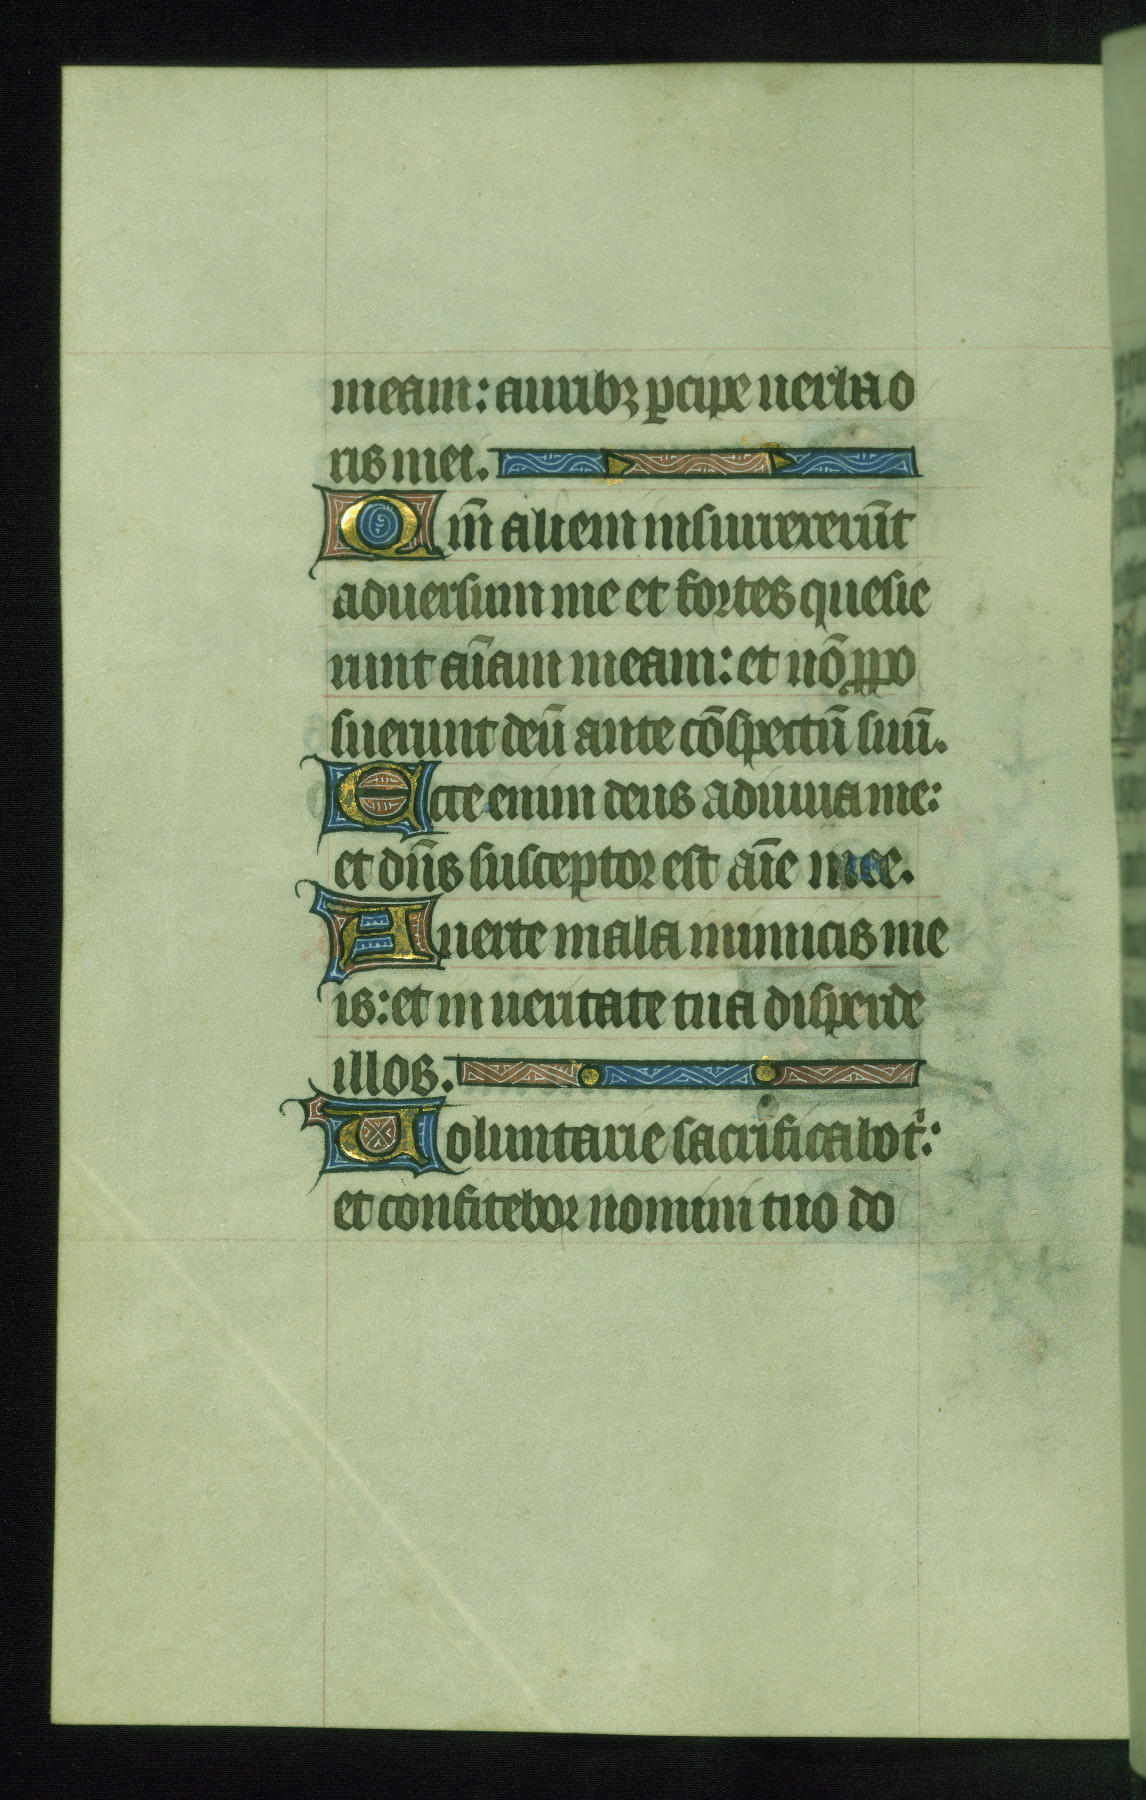 meam: auribꝫ ꝑcipe uerba o
ris mei.
Qm̄ alieni insurrexerūt
aduersum me et fortes quesie
runt aīam meam: et nō ꝓpo
suerunt deū ante cōspectū suū.
Ecce enim deus adiuua me:
et dn̄s susceptor est aīe mee.
Auerte mala inimicis me
is: et in ueritate tua disperde
illos.
Uoluntarie sacrificabor:
et confitebor nomini tuo do